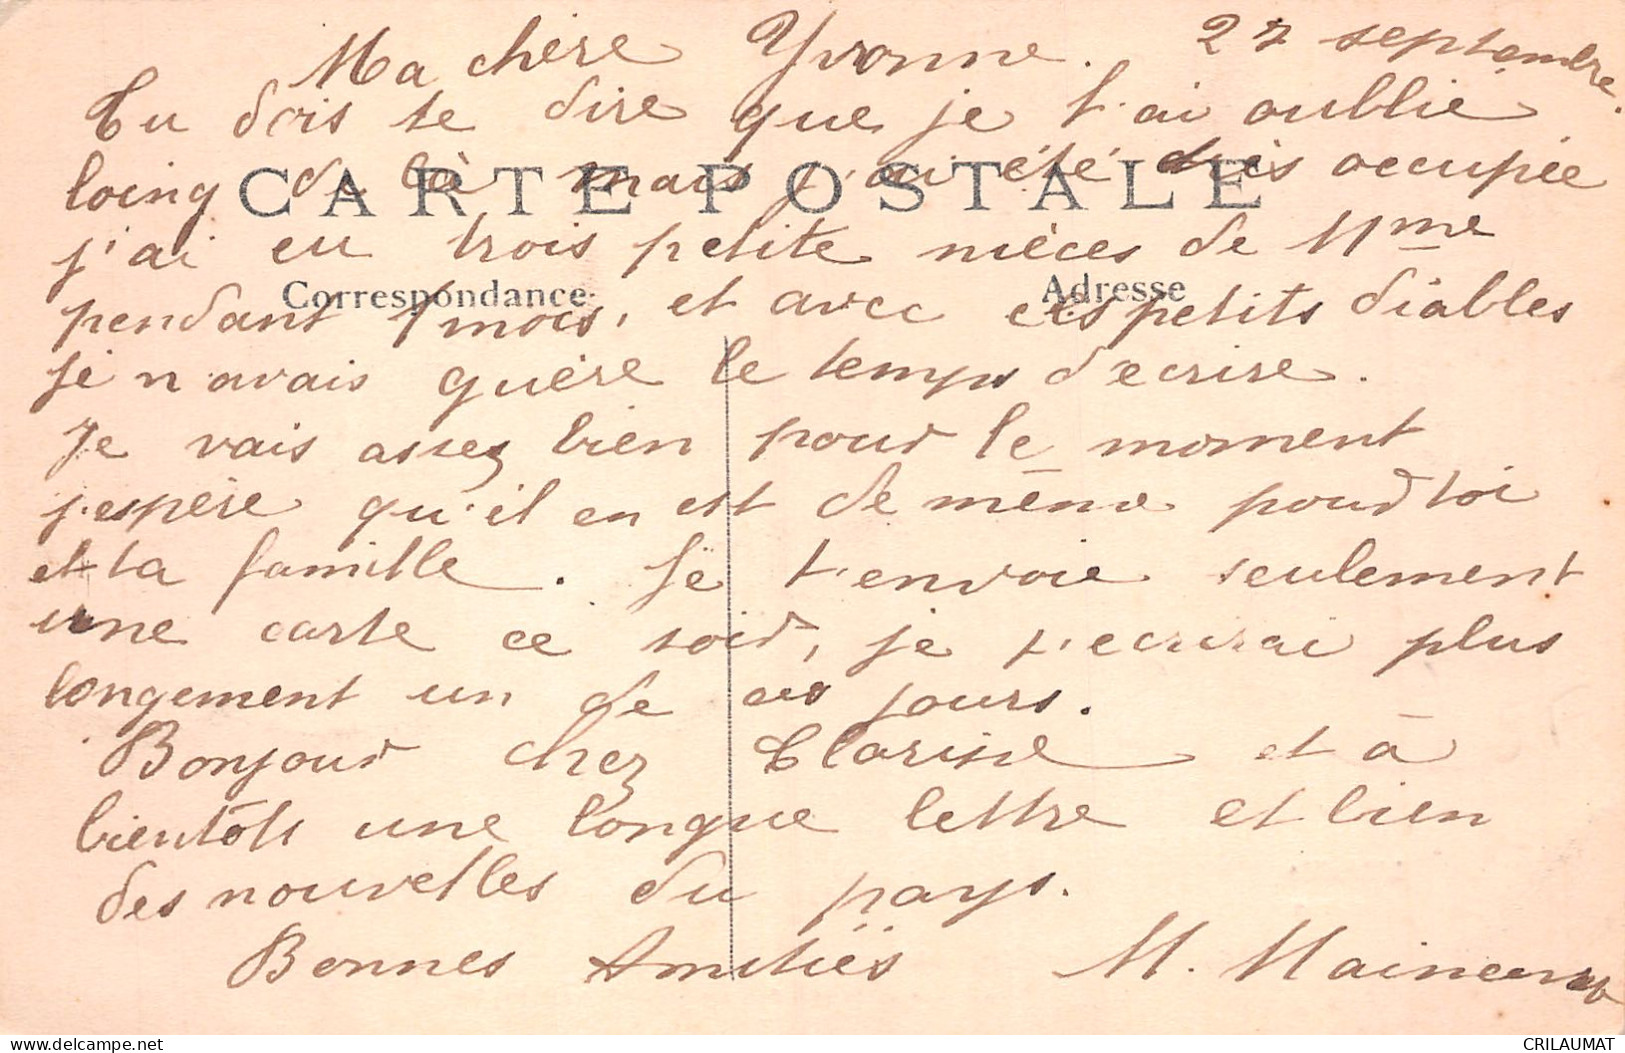 27 septembre.
Ma chère Yvonne.
Tu dois te dire que je t'ai oublie
CARTE POSTALE
loing de là mais j'ai été très occupée
j'ai eu trois petite nièces de Mme
Correspondance Adresse
pendant 1 mois, et avec ces petits diables
je n'avais guère le temps d'ecrire.
Je vais assez bien pour le moment
j'espère qu'il en est de même pour toi
et ta famille. Je t'envoie seulement
une carte ce soir, je t'ecrirai plus
longement un de ces jours.
Bonjour chez Clarise et à
bientôt une longue lettre et bien
des nouvelles du pays.
Bonnes Amitiés M.
delcampe.net
CRILAUMAT